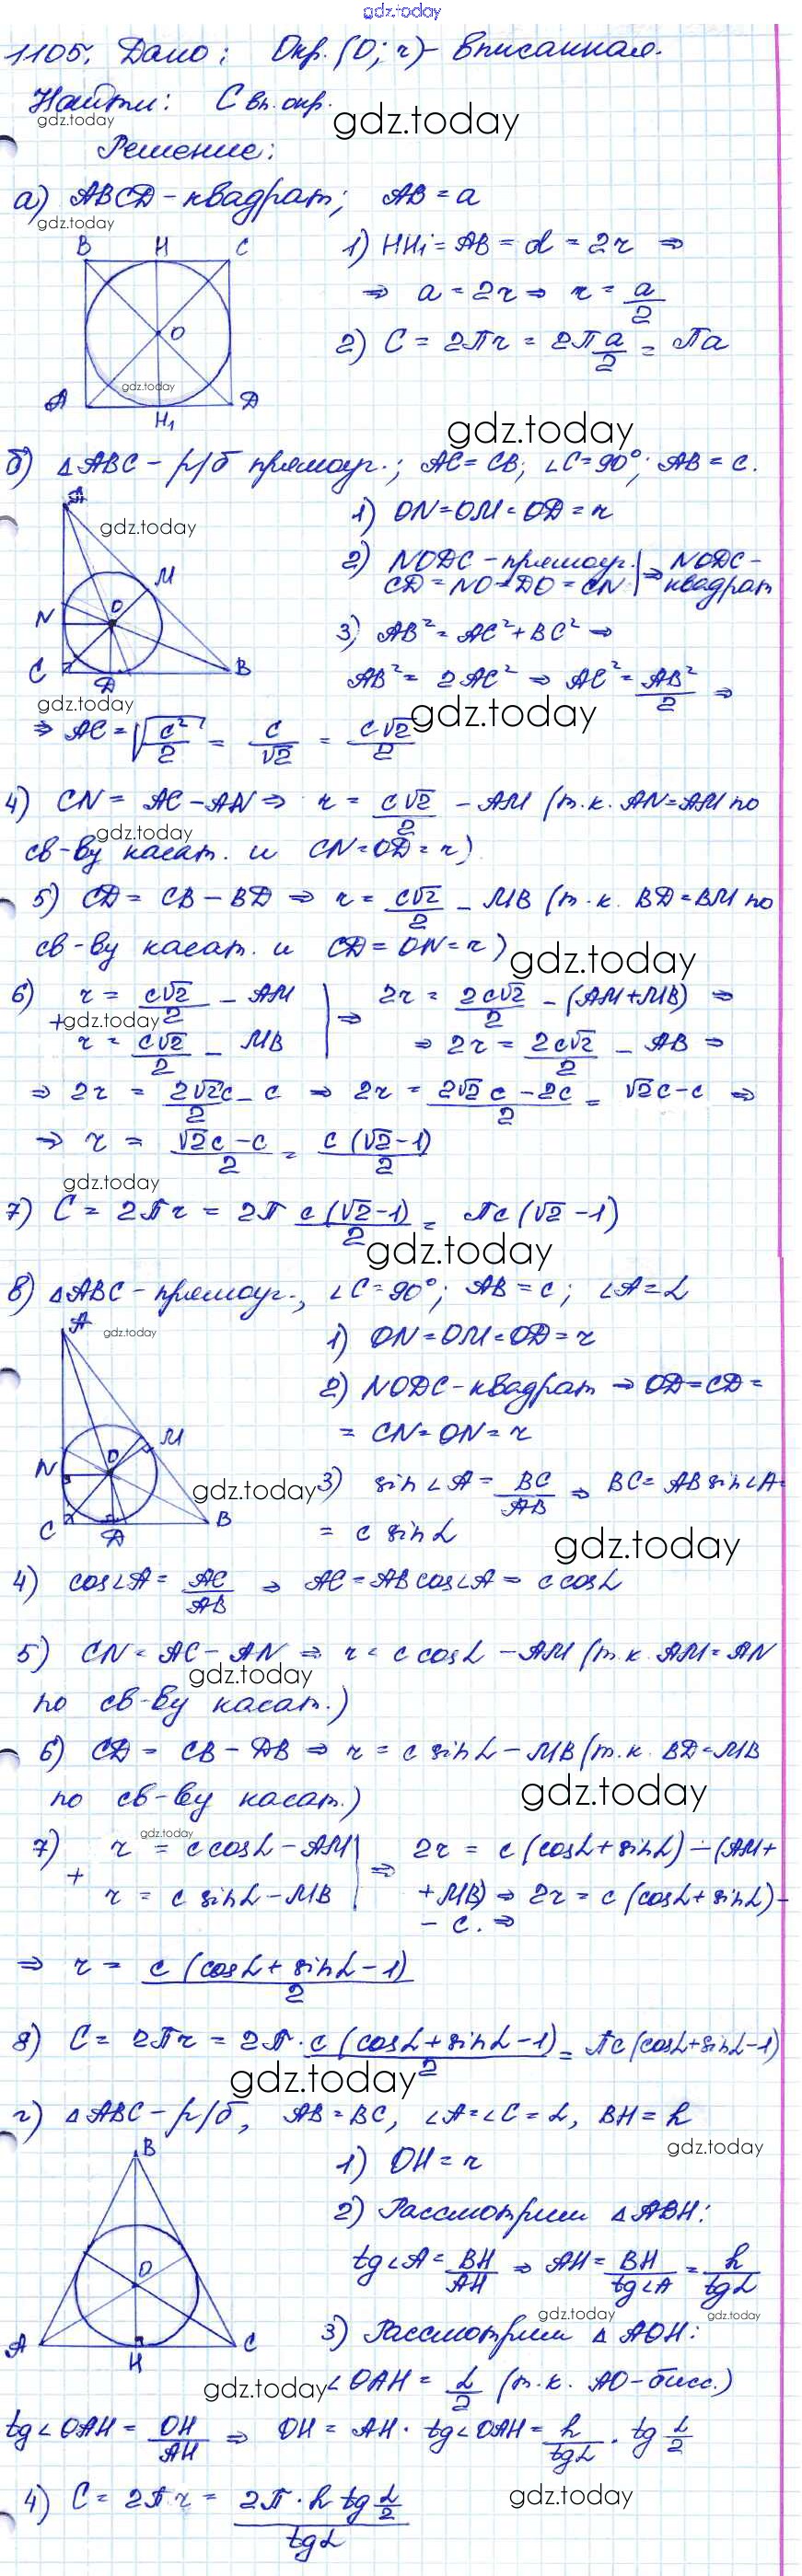 gdz.today
1105. Дано: Окр. (O; r) - вписанная.
Найти: C вп. окр.
gdz.today
gdz.today
Решение:
а) ABCD - квадрат; AB = a
gdz.today
B H C
O
gdz.today
A H₁ D
1) HH₁ = AB = d = 2r ⇒
⇒ a = 2r ⇒ r = a/2
2) C = 2πr = 2π a/2 = πa
gdz.today
б) △ABC - р/б прямоуг.; AC = CB; ∠C = 90°; AB = c.
A
gdz.today
M
O
N
C D B
gdz.today
1) ON = OM = OD = r
2) NODC - прямоуг. | ⇒ NODC -
CD = NO = DO = CN | квадрат
3) AB² = AC² + BC² ⇒
AB² = 2AC² ⇒ AC² = AB²/2 ⇒
⇒ AC = √(c²/2) = c/√2 = c√2/2
gdz.today
4) CN = AC - AN ⇒ r = c√2/2 - AM (т.к. AN = AM по
gdz.today
св-ву касат. и CN = OD = r)
5) CD = CB - BD ⇒ r = c√2/2 - MB (т.к. BD = BM по
св-ву касат. и CD = ON = r)
gdz.today
6) r = c√2/2 - AM | ⇒ 2r = 2c√2/2 - (AM + MB) ⇒
+
gdz.today
r = c√2/2 - MB | ⇒ 2r = 2c√2/2 - AB ⇒
⇒ 2r = 2√2c/2 - c ⇒ 2r = (2√2c - 2c)/2 = √2c - c ⇒
⇒ r = (√2c - c)/2 = c(√2 - 1)/2
gdz.today
7) C = 2πr = 2π c(√2 - 1)/2 = πc(√2 - 1)
gdz.today
в) △ABC - прямоуг., ∠C = 90°; AB = c; ∠A = α
A
gdz.today
M
O
N
C D B
1) ON = OM = OD = r
2) NODC - квадрат ⇒ OD = CD =
= CN = ON = r
gdz.today
3) sin∠A = BC/AB ⇒ BC = AB sin∠A =
= c sinα
gdz.today
4) cos∠A = AC/AB ⇒ AC = AB cos∠A = c cosα
5) CN = AC - AN ⇒ r = c cosα - AM (т.к. AM = AN
gdz.today
по св-ву касат.)
6) CD = CB - DB ⇒ r = c sinα - MB (т.к. BD = MB
по св-ву касат.)
gdz.today
gdz.today
7) r = c cosα - AM | ⇒ 2r = c(cosα + sinα) - (AM +
+
r = c sinα - MB | + MB) ⇒ 2r = c(cosα + sinα) -
- c. ⇒
⇒ r = c(cosα + sinα - 1)/2
8) C = 2πr = 2π · c(cosα + sinα - 1)/2 = πc(cosα + sinα - 1)
gdz.today
г) △ABC - р/б, AB = BC, ∠A = ∠C = α, BH = h
gdz.today
B
O
A H C
1) OH = r
2) Рассмотрим △ABH:
tg∠A = BH/AH ⇒ AH = BH/tg∠A = h/tgα
gdz.today
gdz.today
3) Рассмотрим △AOH:
gdz.today
∠OAH = α/2 (т.к. AO - бисс.)
tg∠OAH = OH/AH ⇒ OH = AH · tg∠OAH = h/tgα · tg α/2
gdz.today
4) C = 2πr = 2π · h tg α/2 / tgα